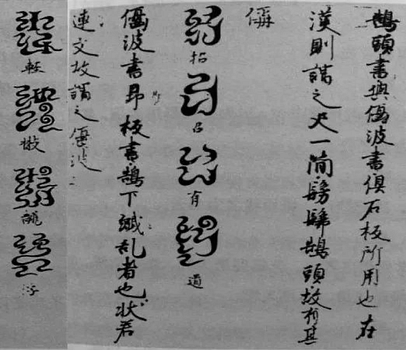 鵠頭書與偃波書俱石板所用也在
漢則謂之尺一簡髣髴鵠頭故有其
偁
招呂有道
偃波書昂板書鵠下纎乱者也状若
連文故謂之偃波
輕檝浮